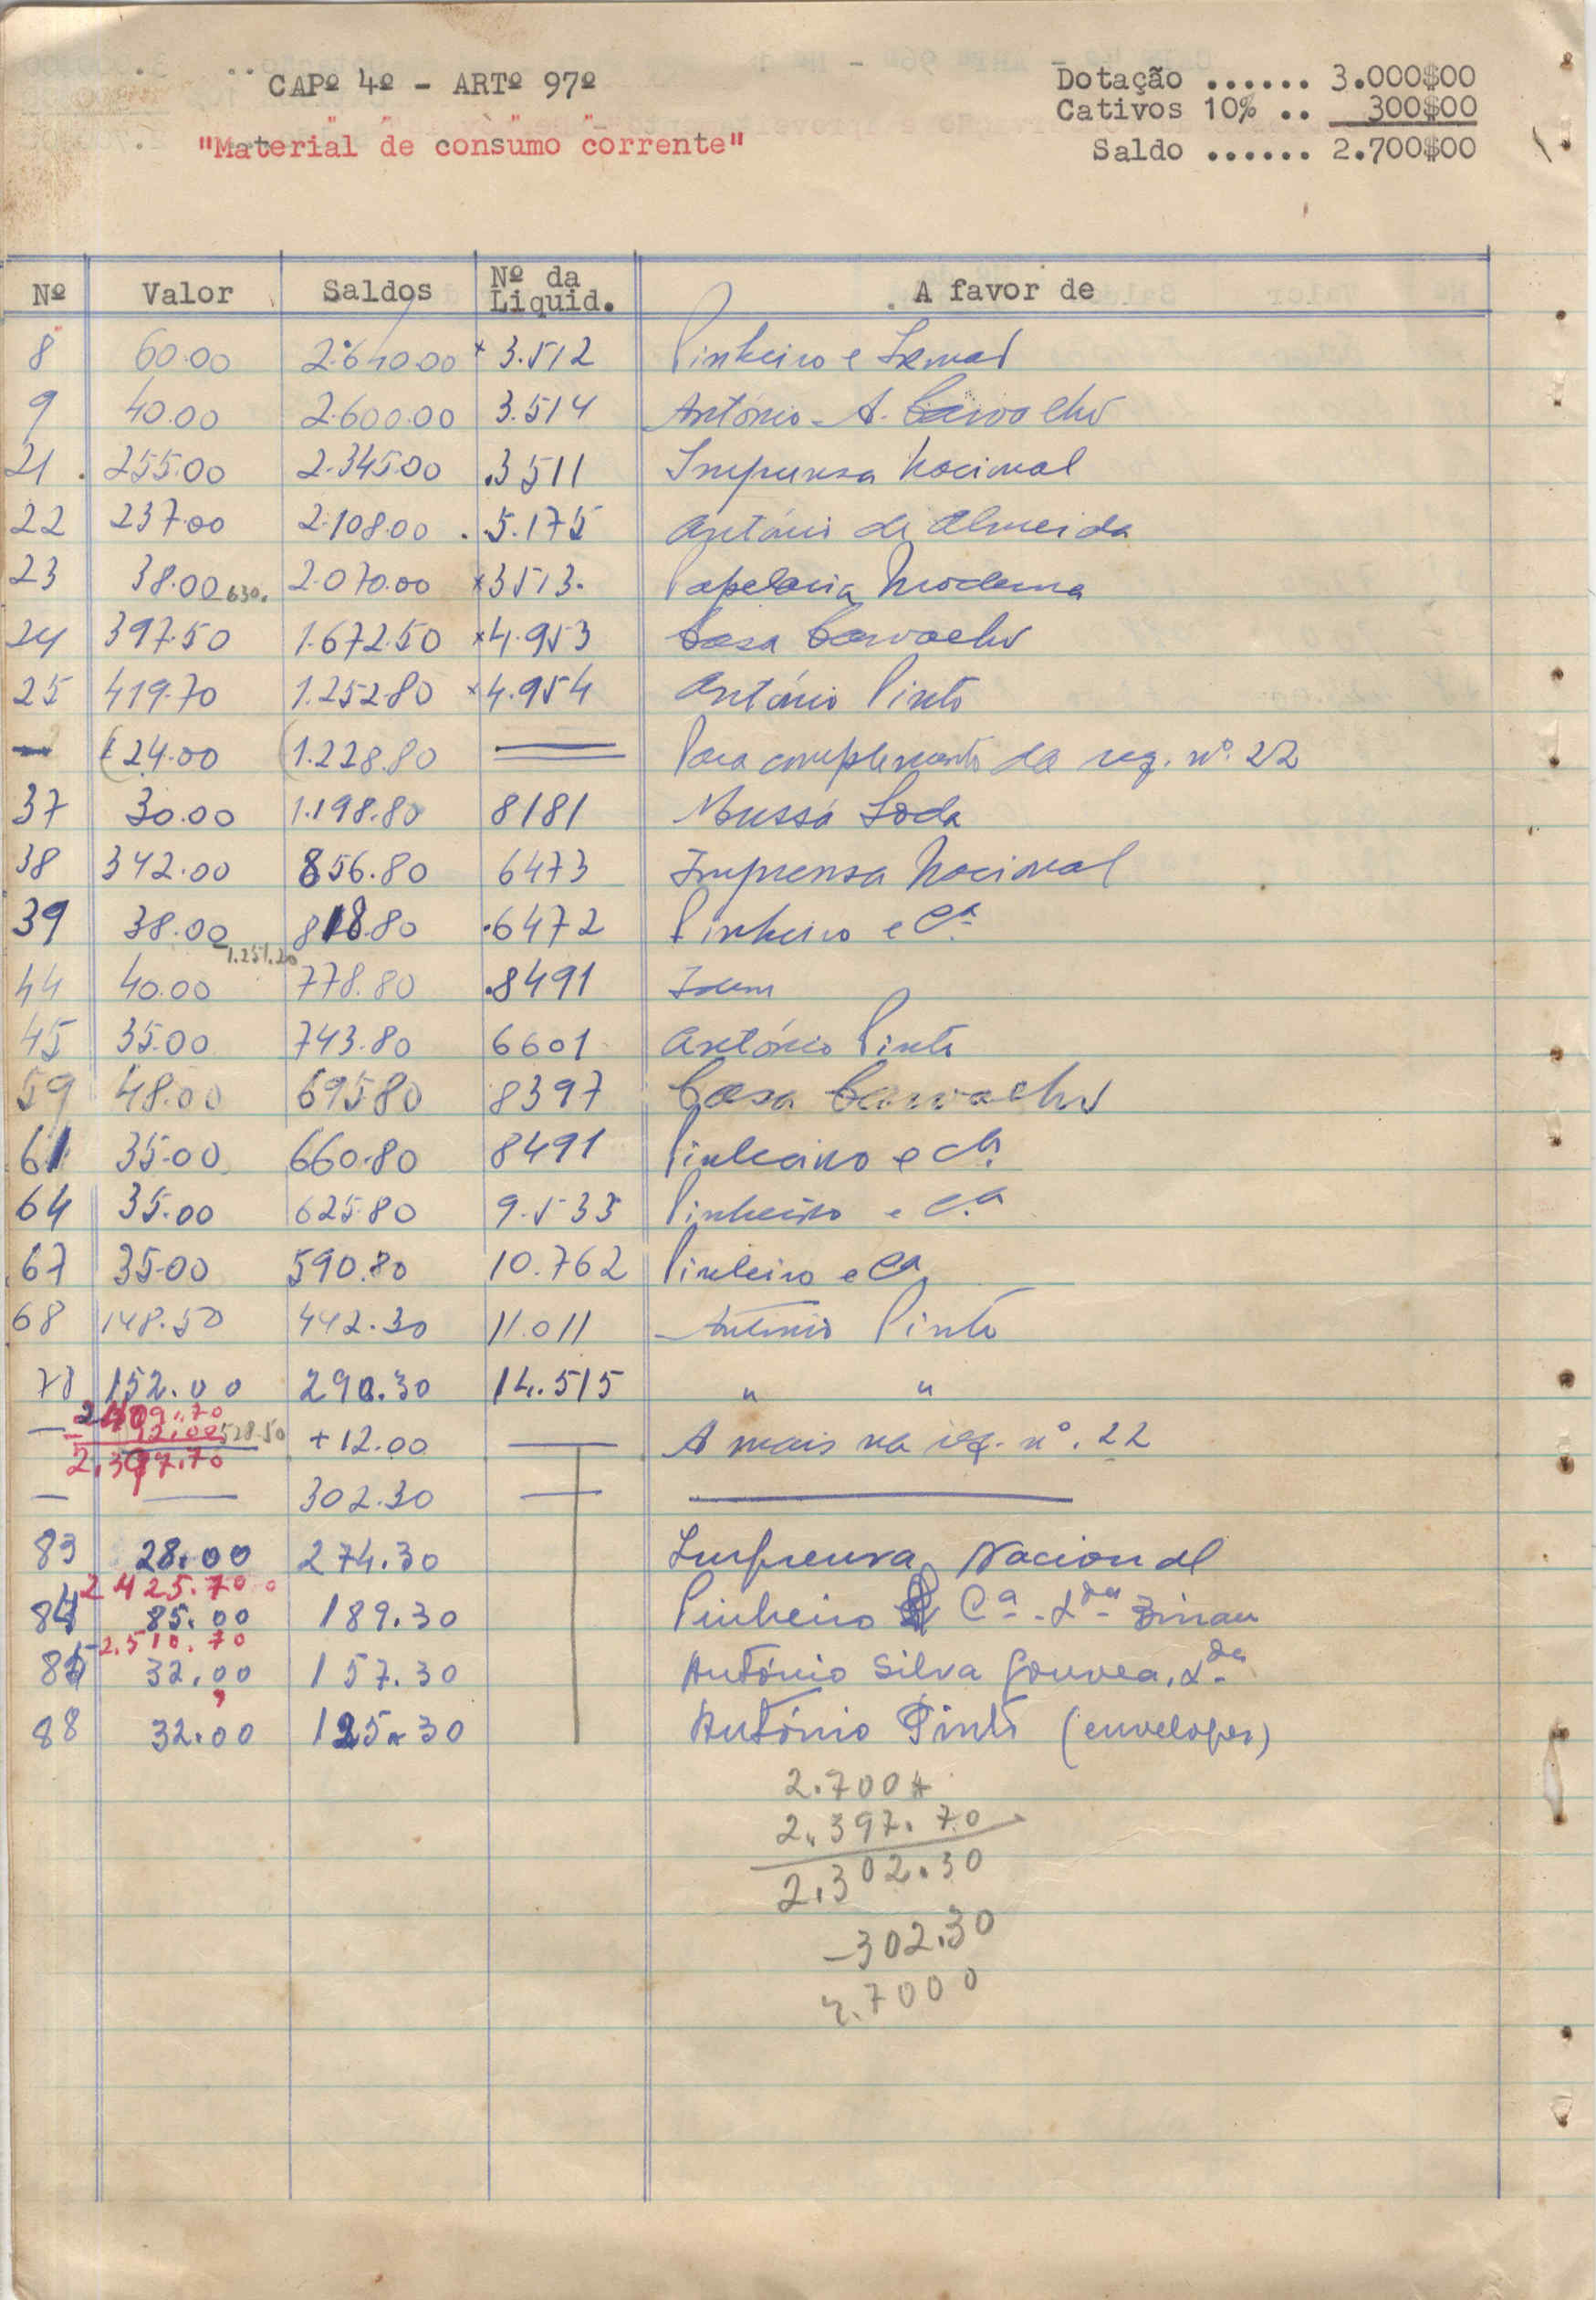 CAPº 4º - ARTº 97º
"Material de consumo corrente"
Dotação ...... 3.000$00
Cativos 10% .. 300$00
Saldo ...... 2.700$00
Nº Valor Saldos Nº da Liquid. A favor de
8 60.00 2.640.00 × 3.512 Pinheiro e
9 40.00 2.600.00 3.514 António A. Carvalho
21 . 255.00 2.345.00 .3511 Imprensa Nacional
22 237.00 2.108.00 . .5.175 António de Almeida
23 38.00 630. 2.070.00 ×3513. Papelaria Moderna
24 397.50 1.672.50 ×4.953 Casa Carvalho
25 419.70 1.252.80 ×4.954 António Pinto
— (24.00 (1.228.80 — Para complemento da req. nº. 22
37 30.00 1.198.80 8181 Mussá
38 342.00 856.80 6473 Imprensa Nacional
39 38.00 818.80 .6472 Pinheiro e Cª
1.251.20
44 40.00 778.80 .8491 Idem
45 35.00 743.80 6601 António Pinto
59 48.00 695.80 8397 Casa Carvalho
61 35.00 660.80 8491 Pinheiro e Cª.
64 35.00 625.80 9.533 Pinheiro e C.ª
67 35.00 590.80 10.762 Pinheiro e Cª
68 148.50 442.30 11.011 António Pinto
78 152.00 290.30 14.515 " "
2409.70
— 12.00 528.50 +12.00 — A mais na req. nº. 22
2.397.70
— — 302.30 —
83 28.00 274.30 Imprensa Nacional
2425.70
84 85.00 189.30 Pinheiro & Cª - Ldª
2.510.70
85 32.00 157.30 António Silva Gouvea, Ldª
88 32.00 125.30 António Pinto (envelopes)
2.700$
2.397.70
2.302.30
-302.30
2.7000